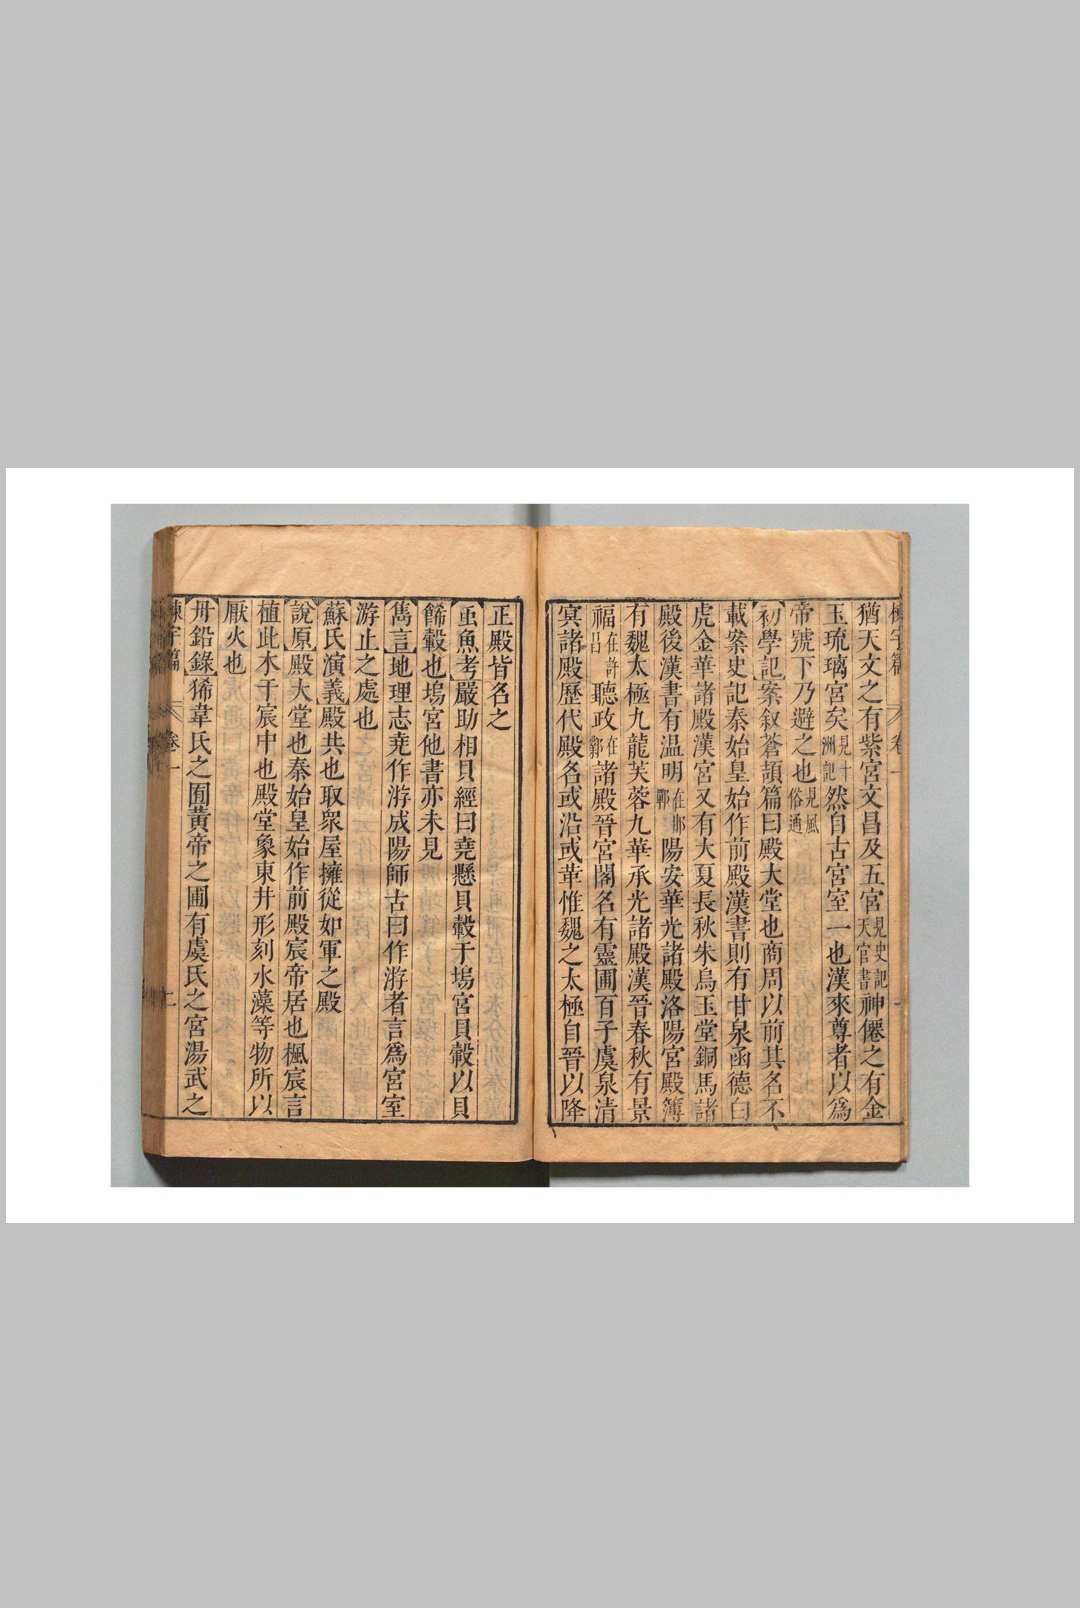 棟宇篇 卷一
猶天文之有紫宮文昌及五宮見史記天官書神僊之有金
玉琉璃宮矣見十洲記然自古宮室一也漢來尊者以爲
帝號下乃避之也見風俗通
初學記案叙蒼頡篇曰殿大堂也商周以前其名不
載案史記秦始皇始作前殿漢書則有甘泉函德白
虎金華諸殿漢宮又有大夏長秋朱鳥玉堂銅馬諸
殿後漢書有温明在邯鄲陽安華光諸殿洛陽宮殿簿
有魏太極九龍芙蓉九華承光諸殿漢晉春秋有景
福在許昌聽政在鄴諸殿晉宮閣名有靈圃百子虞泉清
㝠諸殿歷代殿名或沿或革惟魏之太極自晉以降
正殿皆名之
䖝魚考嚴助相貝經曰堯懸貝轂于塢宮貝轂以貝
餙轂也塢宮他書亦未見
雋言地理志堯作游成陽師古曰作游者言爲宮室
游止之處也
蘇氏演義殿共也取衆屋擁從如軍之殿
說原殿大堂也秦始皇始作前殿宸帝居也楓宸言
植此木于宸中也殿堂象東井形刻水藻等物所以
厭火也
丹鉛錄狶韋氏之囿黃帝之圃有虞氏之宮湯武之
棟宇篇 卷一 二